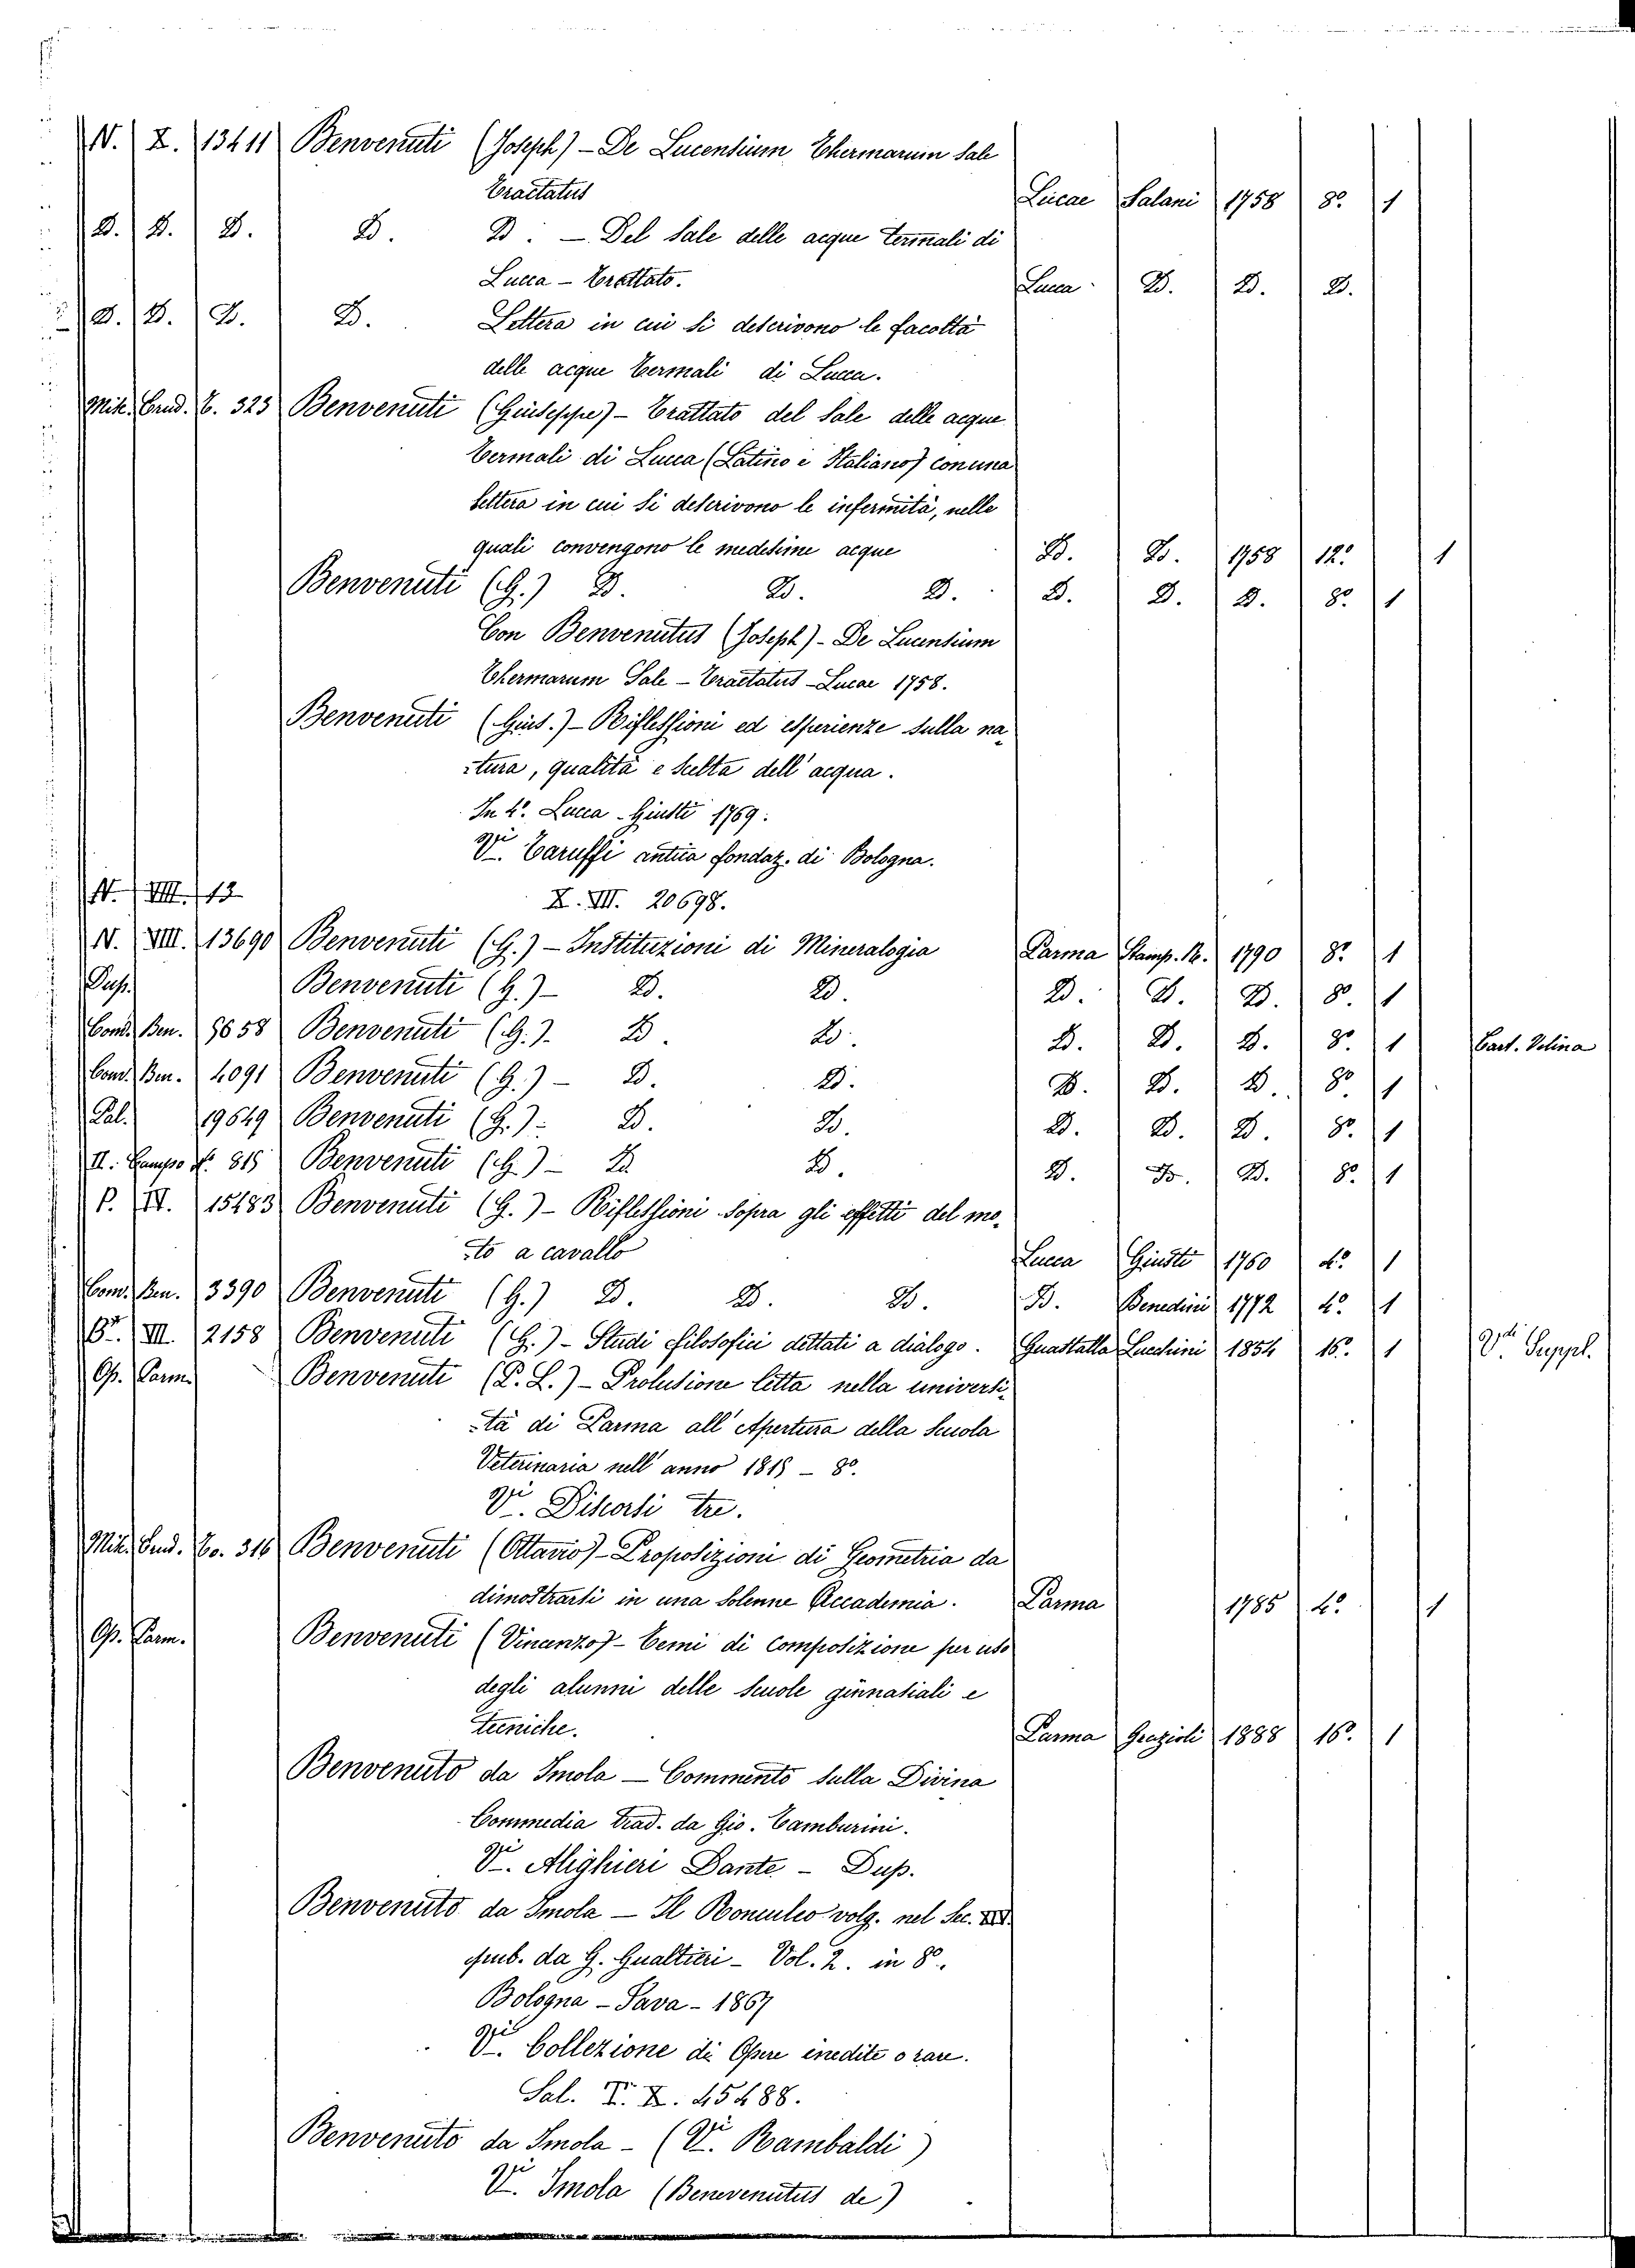 N. X. 13411 Benvenuti (Joseph) - De Lucensium Thermarum sale
Tractatus Lucae Salani 1758 8º 1
D. D. D. D. D. - Del sale delle acque termali di
Lucca - Trattato. Lucca D. D. D.
D. D. D. D. Lettera in cui si descrivono le facoltà
delle acque termali di Lucca.
Mik. Cred. C. 323 Benvenuti (Giuseppe) - Trattato del Sale delle acque
termali di Lucca (Latino e Italiano) con una
lettera in cui si descrivono le infermità, nelle
quali convengono le medesime acque D. D. 1758 12º 1
Benvenuti (G.) D. D. D. D. D. D. 8º 1
Con Benvenutus (Joseph) - De Lucensium
Thermarum Sale - Tractatus - Lucae 1758.
Benvenuti (Gius.) - Riflessioni ed esperienze sulla na
:tura, qualità e scelta dell'acqua.
In 4º. Lucca - Giusti 1769:
Vi. Taruffi antica fondaz. di Bologna.
N. VIII. 13
X. VII. 20698.
N. VIII. 13690 Benvenuti (G.) - Instituzioni di Mineralogia Parma Stamp. R. 1790 8º 1
Dup. Benvenuti (G.) - D. D. D. D. D. 8º 1
Cond. Ben. 9658 Benvenuti (G.) - D. D. D. D. D. 8º 1 Cart. Velina
Cond. Ben. 4091 Benvenuti (G.) - D. D. D. D. D. 8º 1
Pal. 19649 Benvenuti (G.) - D. D. D. D. D. 8º 1
II. Campo Nº 815 Benvenuti (G.) - D. D. D. D. D. 8º 1
P. IV. 15483 Benvenuti (G.) - Riflessioni sopra gli effetti del mo
:to a cavallo Lucca Giusti 1760 4º 1
Cond. Ben. 3390 Benvenuti (G.) D. D. D. D. Benedini 1772 4º 1
VII. 2158 Benvenuti (G.) - Studi filosofici dettati a dialogo. Guastalla Lucchini 1854 16º. 1 Vdi Suppl.
Op. Parm. Benvenuti (P. L.) - Prolusione letta nella universi
:tà di Parma all'Apertura della Scuola
Veterinaria nell'anno 1815 - 8º.
Vi. Discorsi tre.
Mik. Cred. Co. 316 Benvenuti (Ottavio) - Proposizioni di Geometria da
dimostrarsi in una solenne Accademia. Parma 1785 4º 1
Op. Parm. Benvenuti (Vinanzo) - Temi di composizione per uso
degli alunni delle scuole ginnasiali e
tecniche. Parma Grazioli 1888 16º. 1
Benvenuto da Imola - Commento sulla Divina
Commedia trad. da Gio. Tamburini.
Vi. Alighieri Dante - Dup.
Benvenuto da Imola - Il Romuleo volg. nel Sec. XIV
pub. da G. Guatteri - Vol. 2. in 8º.
Bologna - Fava - 1867
Vi. Collezione di Opere inedite o rare.
Sal. T. X. 45488.
Benvenuto da Imola - (Vi. Rambaldi)
Vi. Imola (Benevenutus de)